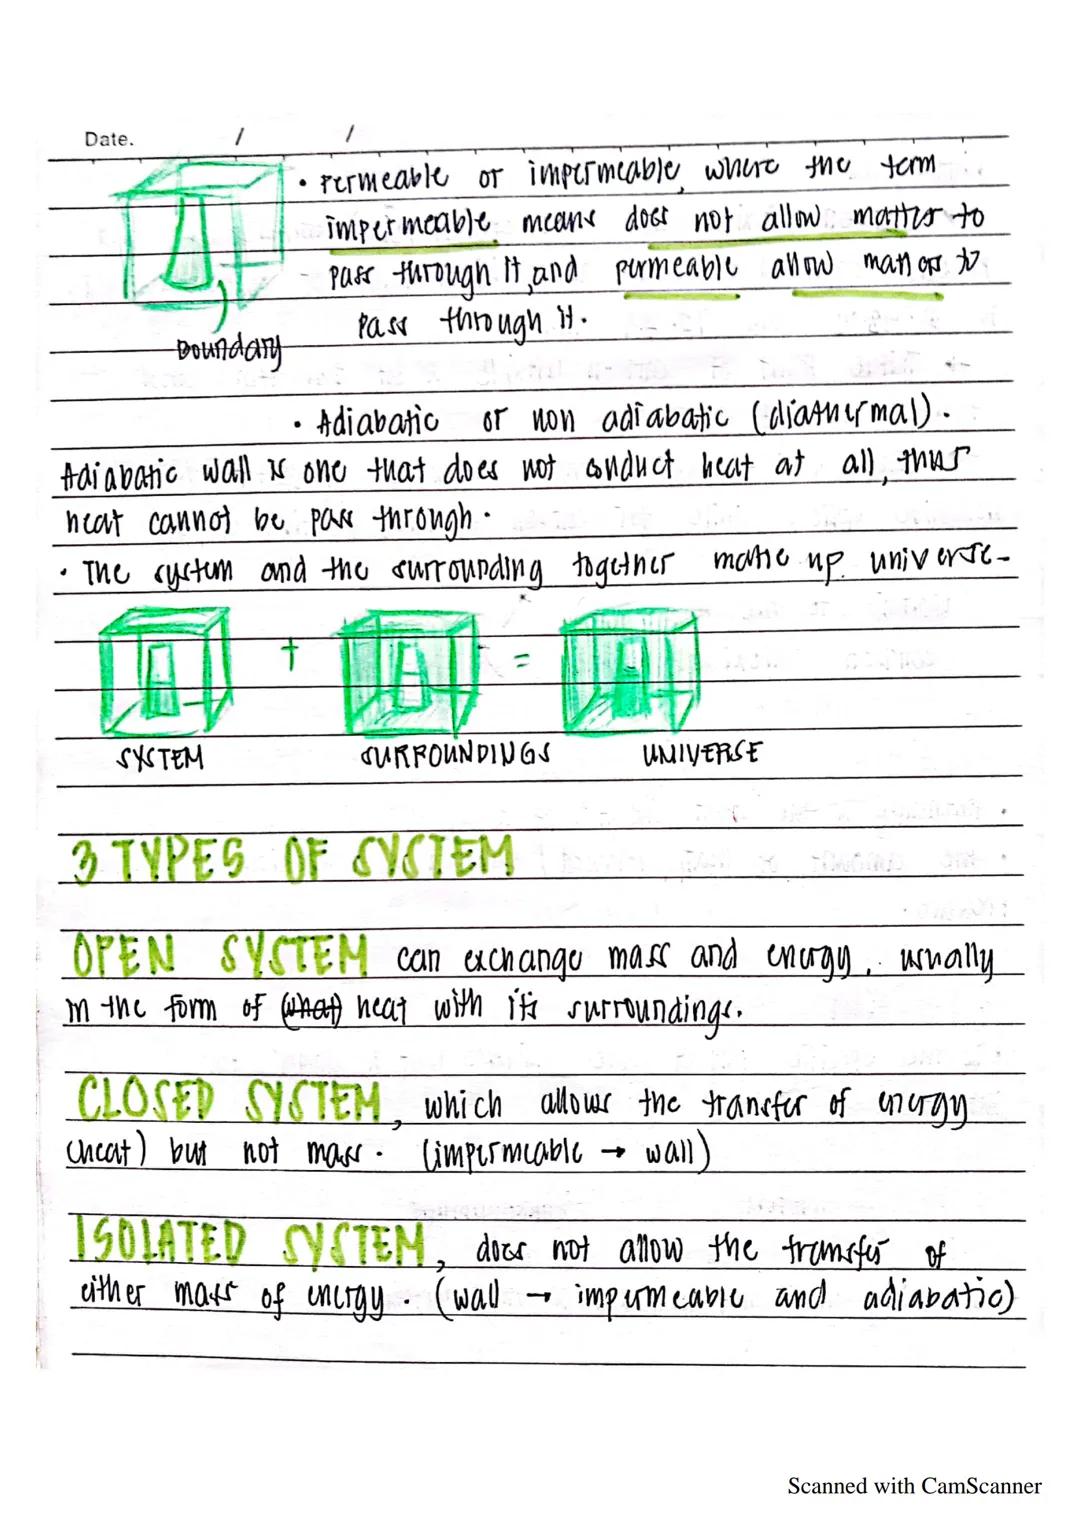 Date. / /
• Permeable or impermeable, where the term
impermeable means does not allow matter to
pass through it, and permeable allow matter to
pass through it.
Boundary
• Adiabatic or non adiabatic (diathermal).
Adiabatic wall is one that does not conduct heat at all, thus
heat cannot be pass through.
• The system and the surrounding together make up universe.
+ =
SYSTEM SURROUNDINGS UNIVERSE
3 TYPES OF SYSTEM
OPEN SYSTEM can exchange mass and energy, usually
in the form of (what) heat with its surroundings.
CLOSED SYSTEM, which allows the transfer of energy
(heat) but not mass. (impermeable → wall)
ISOLATED SYSTEM, does not allow the transfer of
either mass of energy. (wall → impermeable and adiabatic)
Scanned with CamScanner